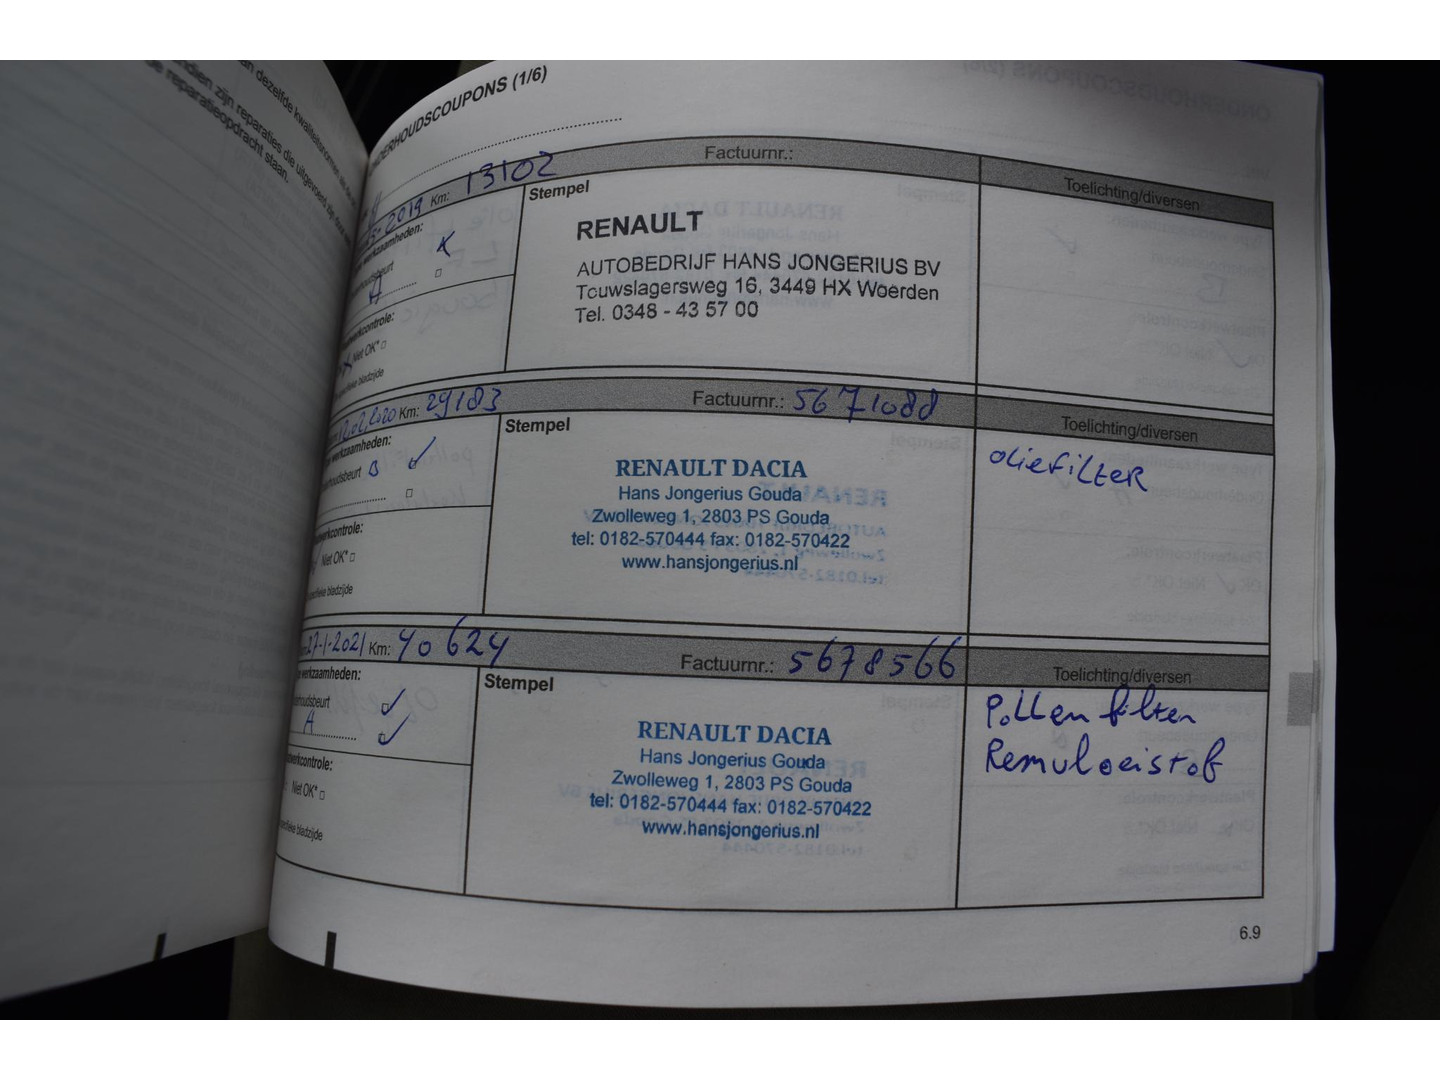 an dezelfde kwaliteitsnormen
zijn reparaties die uitgevoerd zijn door
reparatieopdracht staan.
DERHOUDSCOUPONS (1/6)
2019 Km: 13102
Factuurnr.:
Toelichting/diversen
werkzaamheden:
Stempel
RENAULT
AUTOBEDRIJF HANS JONGERIUS BV
Touwslagersweg 16, 3449 HX Woerden
Tel. 0348 - 43 57 00
A
werkcontrole:
Niet OK*
specifieke bladzijde
2020 Km: 29183
Factuurnr.: 5671088
Toelichting/diversen
werkzaamheden:
houdsbeurt B
Stempel
RENAULT DACIA
Hans Jongerius Gouda
Zwolleweg 1, 2803 PS Gouda
tel: 0182-570444 fax: 0182-570422
www.hansjongerius.nl
oliefilter
werkcontrole:
Niet OK*
specifieke bladzijde
27-1-2021 Km: 40624
Factuurnr.: 5678566
Toelichting/diversen
werkzaamheden:
erhoudsbeurt
A
Stempel
RENAULT DACIA
Hans Jongerius Gouda
Zwolleweg 1, 2803 PS Gouda
tel: 0182-570444 fax: 0182-570422
www.hansjongerius.nl
Pollenfilter
Remvloeistof
werkcontrole:
Niet OK*
specifieke bladzijde
6.9